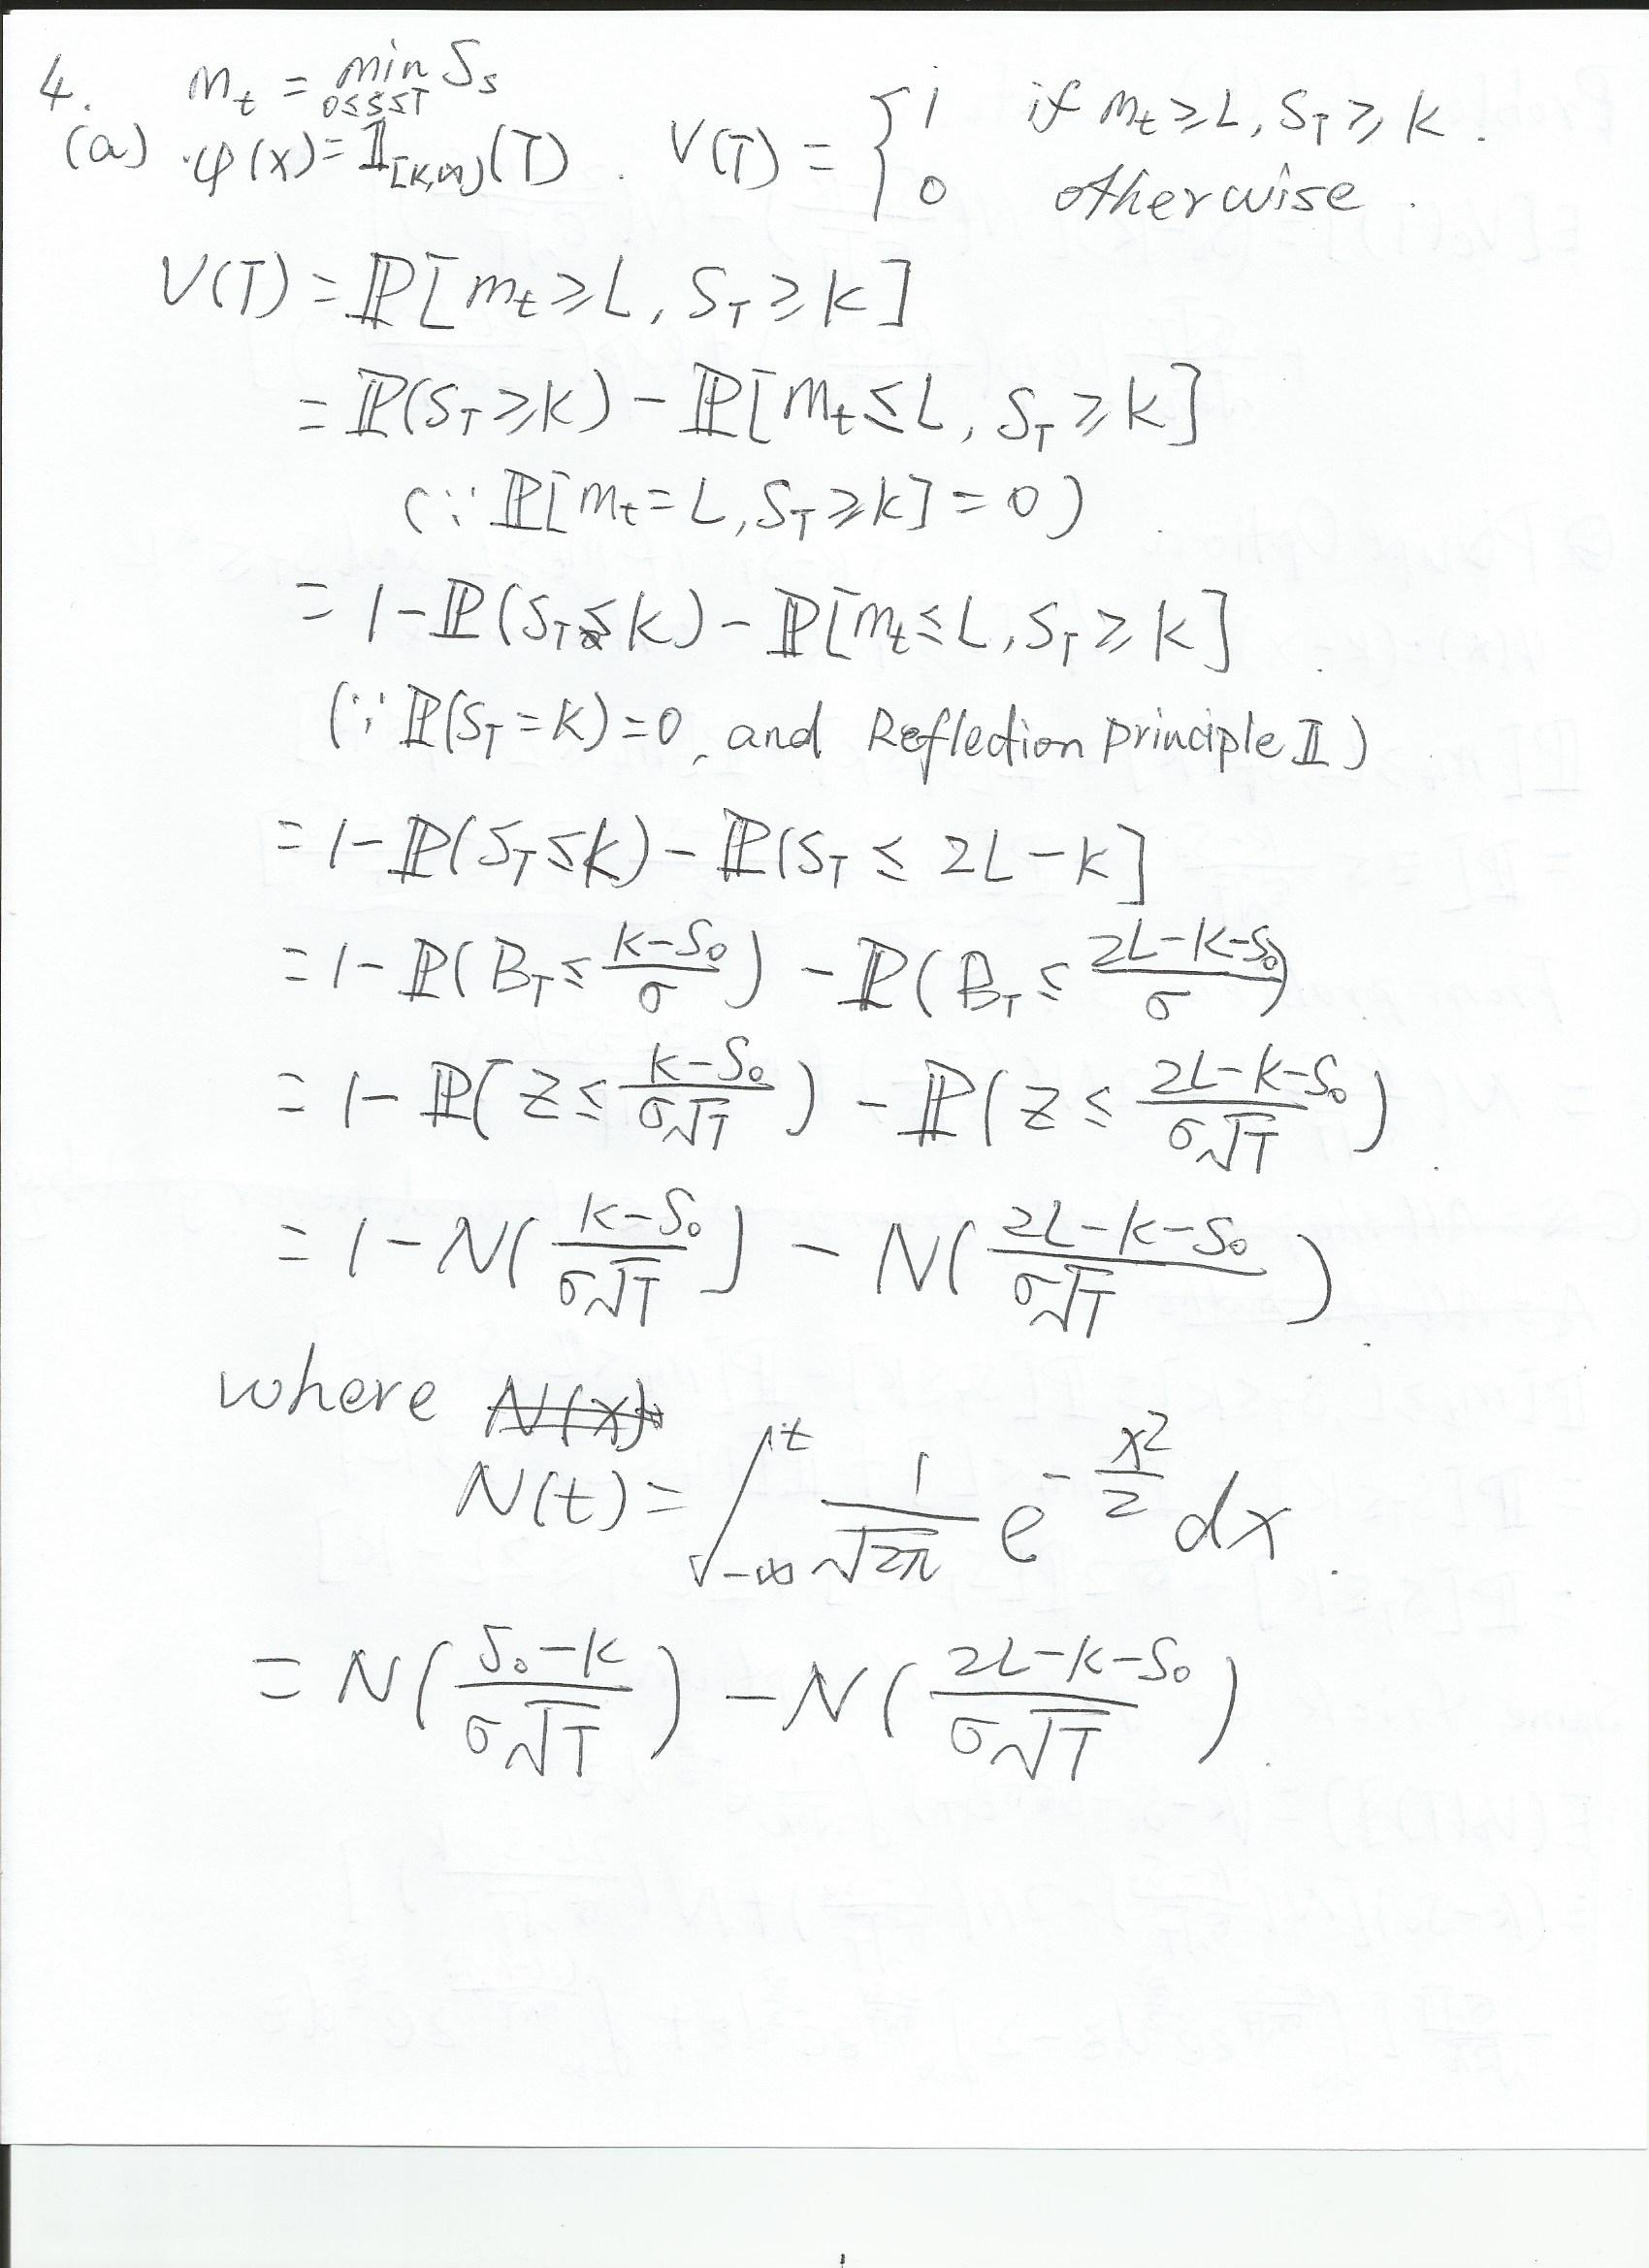 4. m_t = min_{0≤s≤T} S_s
(a) φ(x) = 𝟙_{[K,∞)}(T). V(T) = { 1 if m_t ≥ L, S_T ≥ K. 0 otherwise.
V(T) = ℙ[m_t ≥ L, S_T ≥ K]
= ℙ(S_T ≥ K) − ℙ[m_t ≤ L, S_T ≥ K]
(∵ ℙ[m_t = L, S_T ≥ K] = 0)
= 1 − ℙ(S_T ≤ K) − ℙ[m_t ≤ L, S_T ≥ K]
(∵ ℙ(S_T = K) = 0, and Reflection principle II)
= 1 − ℙ(S_T ≤ K) − ℙ(S_T ≤ 2L − K]
= 1 − ℙ(B_T ≤ \frac{K−S_0}{σ}) − ℙ(B_T ≤ \frac{2L−K−S_0}{σ})
= 1 − ℙ(Z ≤ \frac{K−S_0}{σ√T}) − ℙ(Z ≤ \frac{2L−K−S_0}{σ√T})
= 1 − N(\frac{K−S_0}{σ√T}) − N(\frac{2L−K−S_0}{σ√T})
where N(x)
N(t) = ∫_{−∞}^{t} \frac{1}{√2π} e^{−\frac{x^2}{2}} dx.
= N(\frac{S_0−K}{σ√T}) − N(\frac{2L−K−S_0}{σ√T}).